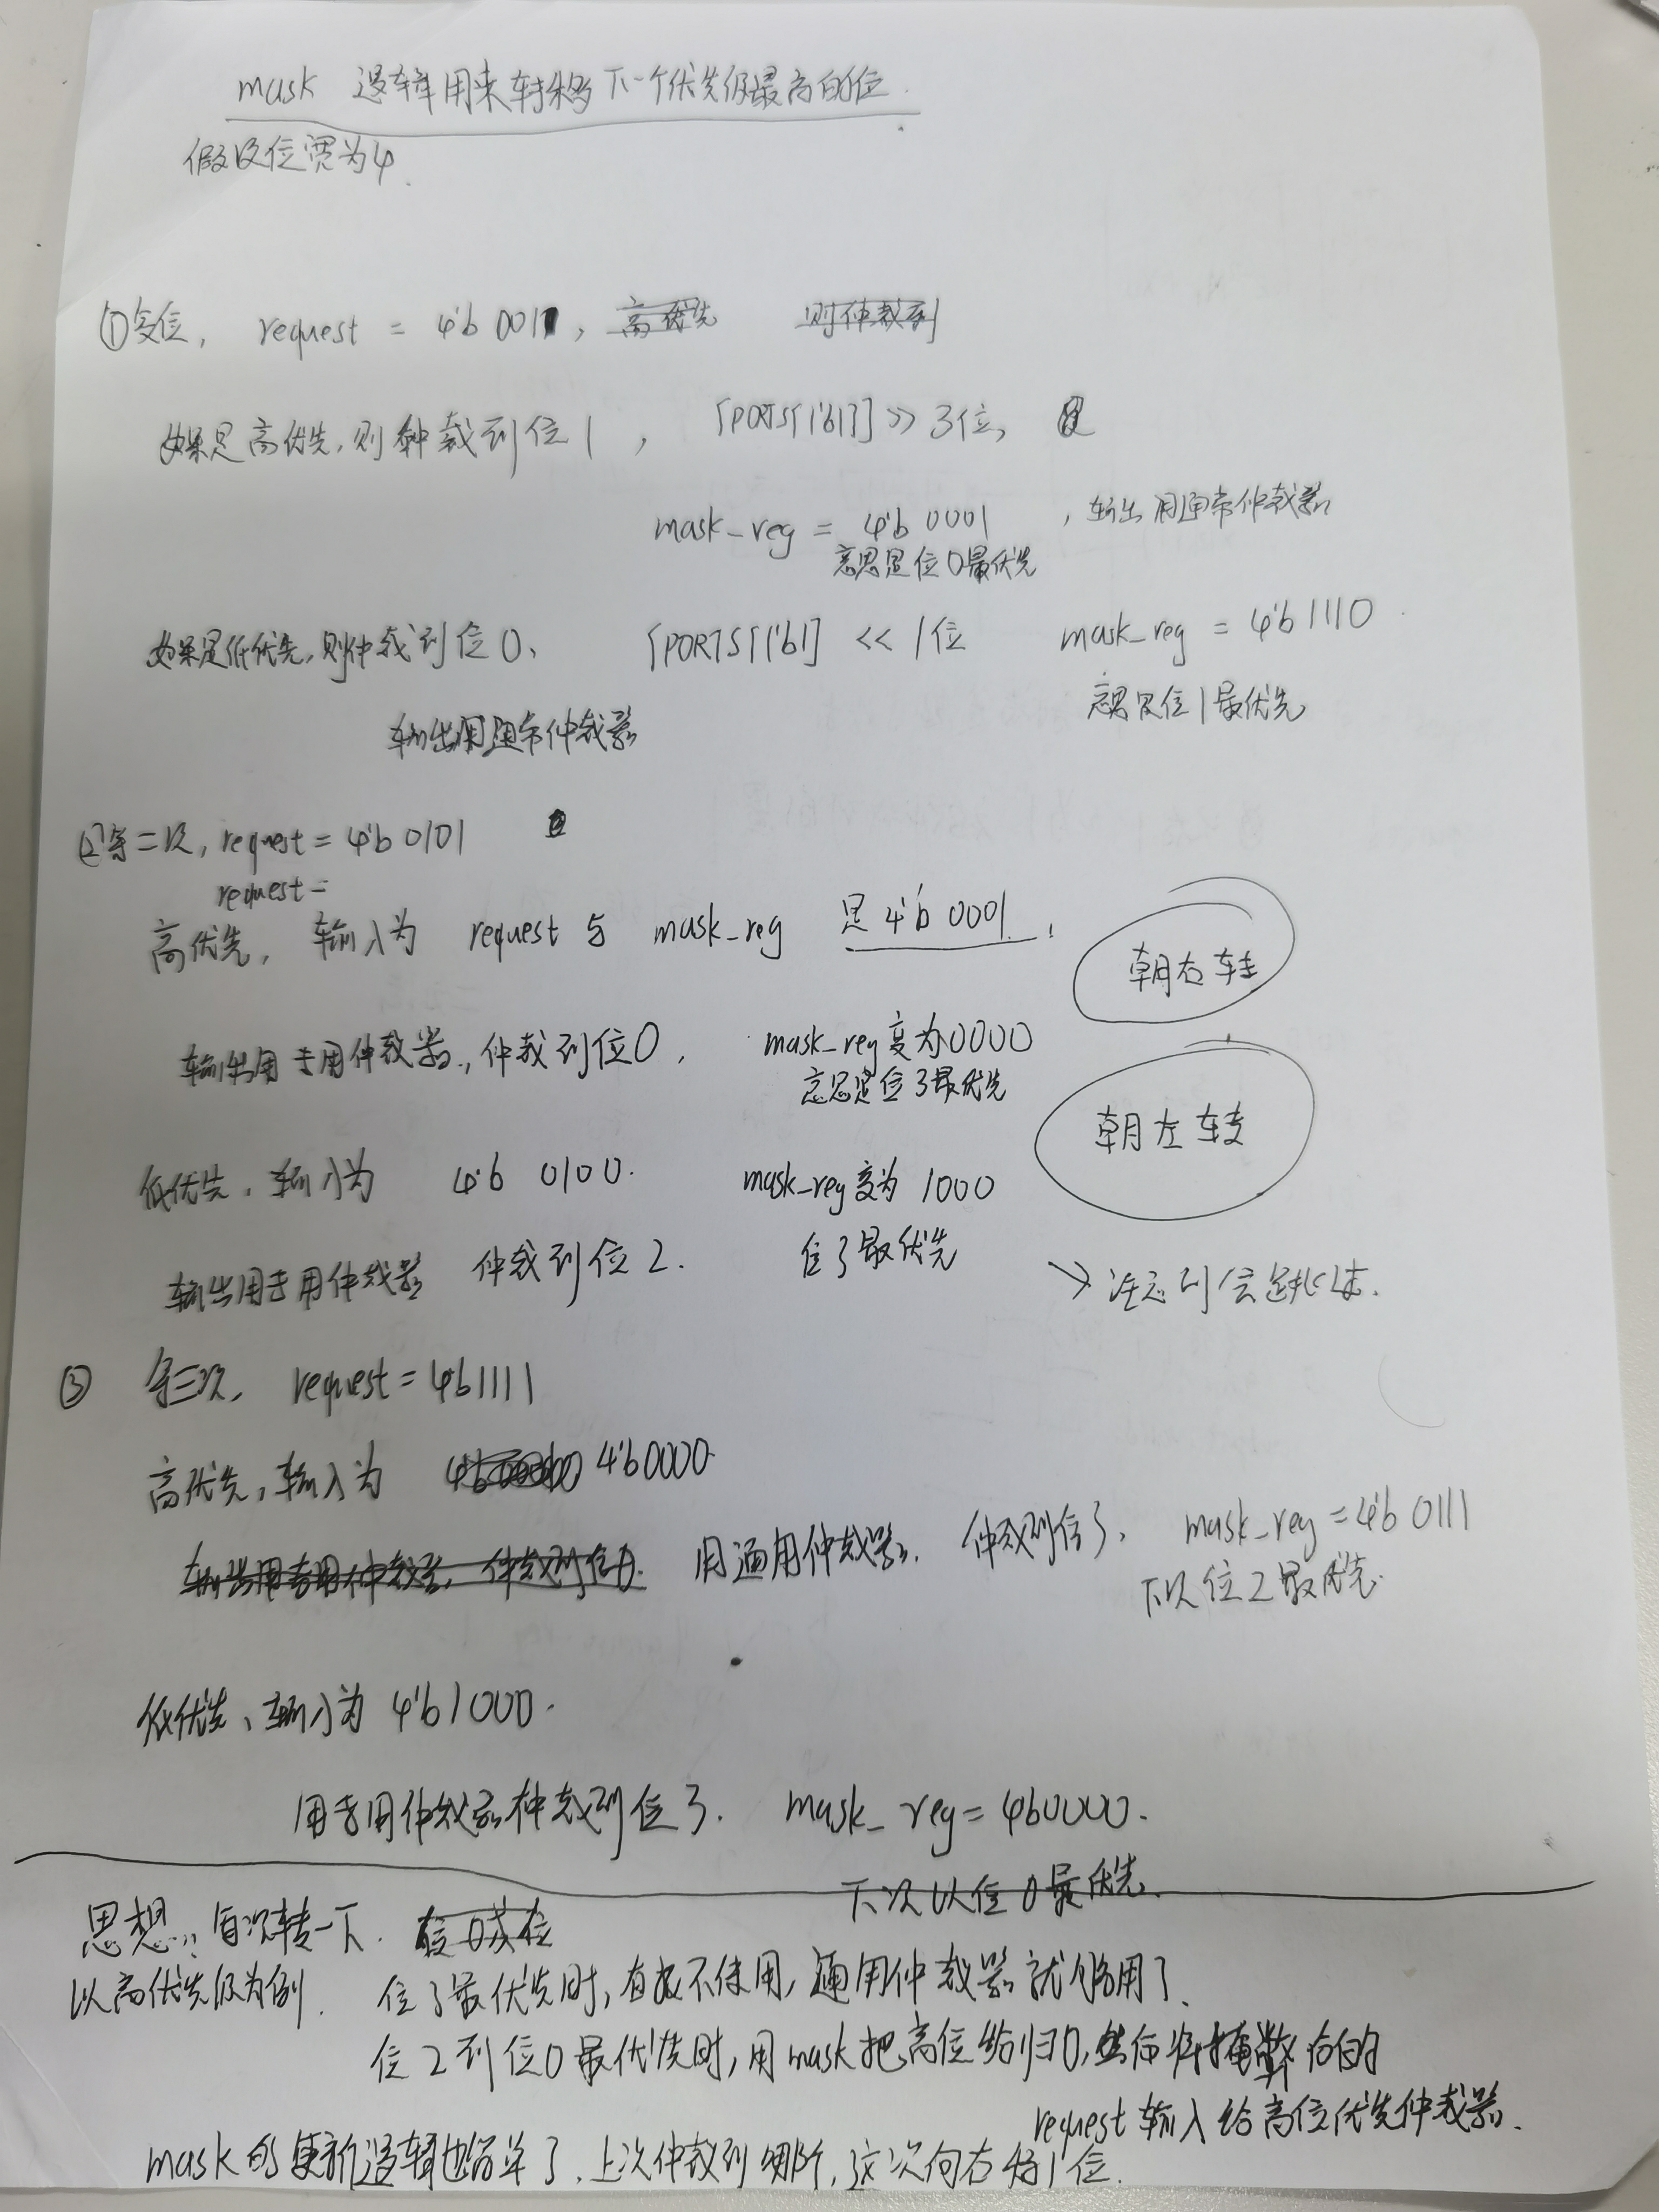 mask 逻辑用来转移下一个优先级最高的位
假设位宽为4.
①复位, request = 4'b 0011, 高优先 则仲裁到
如果是高优先,则仲裁到位1, {PORTS{1'b1}} >> 3位,
mask_reg = 4'b 0001, 输出用通常仲裁器
意思是位0最优先
如果是低优先,则仲裁到位0、 {PORTS{1'b1} << 1位 mask_reg = 4'b 1110
意思是位1最优先
输出用通常仲裁器
②第二次, request = 4'b 0101
request =
高优先, 输入为 request 与 mask_reg 是 4'b 0001.
朝右转
输出用专用仲裁器, 仲裁到位0, mask_reg变为0000
意思是位3最优先
朝左转
低优先, 输入为 4'b 0100. mask_reg变为 1000
输出用专用仲裁器 仲裁到位2. 位3最优先
→ 注意到会
③ 第三次, request = 4'b1111
高优先, 输入为 4'b0000
输出用专用仲裁器, 仲裁到位0. 用通用仲裁器. 仲裁到位3. mask_reg = 4'b 0111
下次位2最优先.
低优先、输入为 4'b1000.
用专用仲裁器仲裁到位3. mask_reg = 4'b0000.
下次以位0最优先.
思想: 每次转一下. 位0或位
以高优先级为例. 位3最优先时, 直接不使用, 通用仲裁器就够用了.
位2到位0最优先时, 用mask把高位给归0, 然后将掩数后的
request 输入给高位优先仲裁器.
mask的更新逻辑也简单了, 上次仲裁到哪个, 这次向右移1位.